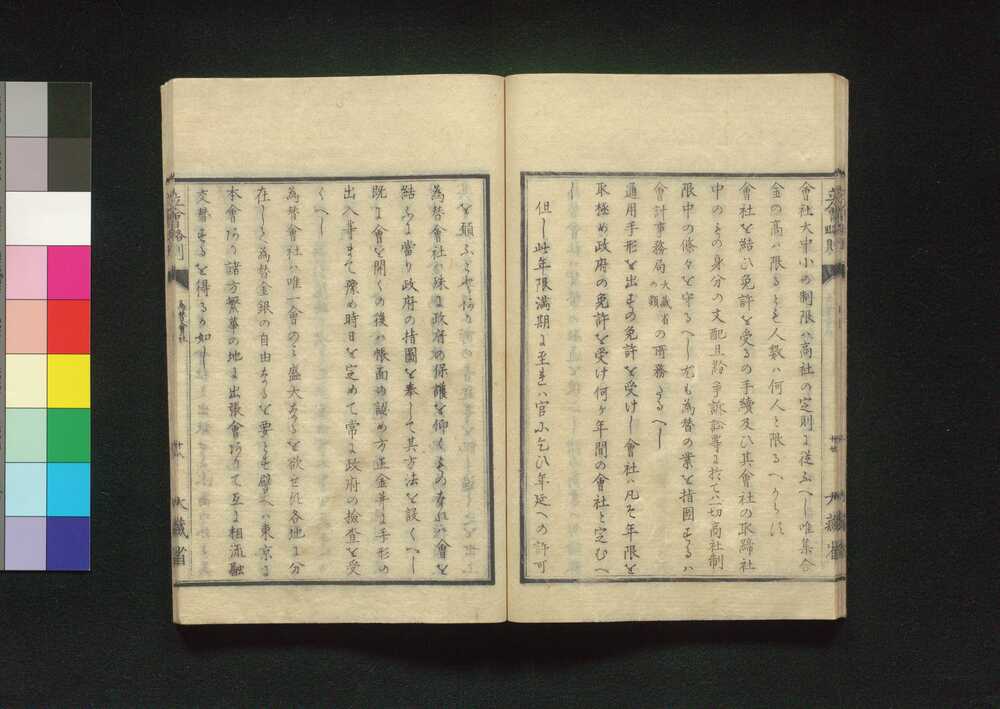 會社大中小の制限ハ商社の定則に從ふへし唯集合
金の高ハ限るとも人數ハ何人と限るへからす
會社を結ひ免許を受るの手續及ひ其會社の取締社
中のその身分の支配且紛爭訴訟等に於てハ一切商社制
限中の條々を守るへし尤も為替の業を指圖するハ
會計事務局 大藏省の の類 所務たるへし
通用手形を出すの免許を受けし會社ハ凡そ年限を
取極め政府の免許を受け何ヶ年間の會社と定むへ
し
但し此年限滿期に至れハ官に乞ひ年延への許可
を願ふ
為替會社ハ殊に政府の保護を仰くものなれハ會を
結ふに當り政府の指圖を奉して其方法を設くへし
既に會を開くの後ハ帳面の認め方正金并に手形の
出入等まて豫め時日を定めて常に政府の檢査を受
くへし
為替會社ハ唯一會のミ盛大なるを欲せす各地に分
在しる為替金銀の自由なるを要とす譬へハ東京に
本會ありて諸方繁華の地に出張會ありて互に相流融
交替するを得るか如し
立會略則
為替會社
廿六
大藏省